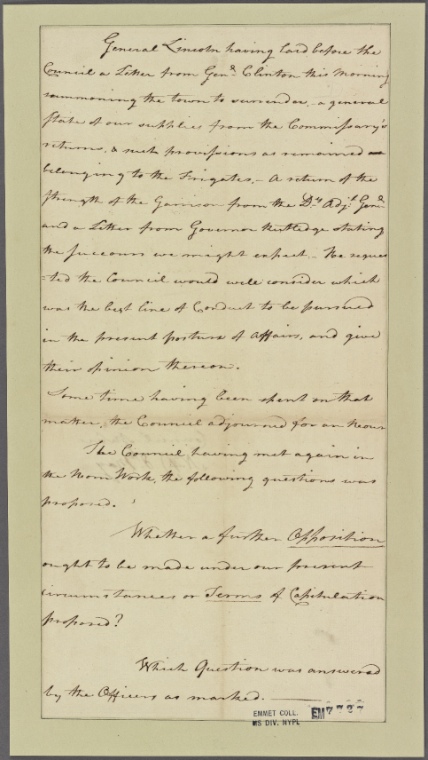 General Lincoln having laid before the
Council a Letter from Genl. Clinton this Morning
summoning the town to surrender - a general
State of our supplies from the Commissary's
returns, & such provisions as remained
belonging to the Frigates,- A return of the
strength of the Garrison from the Dy. Adjt. Genl.
and a Letter from Governor Rutledge stating
the succours we might expect.- He reques
-ted the Council would well consider which
was the best line of Conduct to be pursued
in the present posture of affairs, and give
their opinion thereon.
Some time having been spent on that
matter, the Council adjourned for an hour
The Council having met again in
the Horn Work, the following questions was
proposed.
Whether a further Opposition
ought to be made under our present
circumstances or Terms of Capitulation
proposed?
Which Question was answered
by the Officers as marked.
EMMET COLL.
MS DIV. NYPL
EM7727